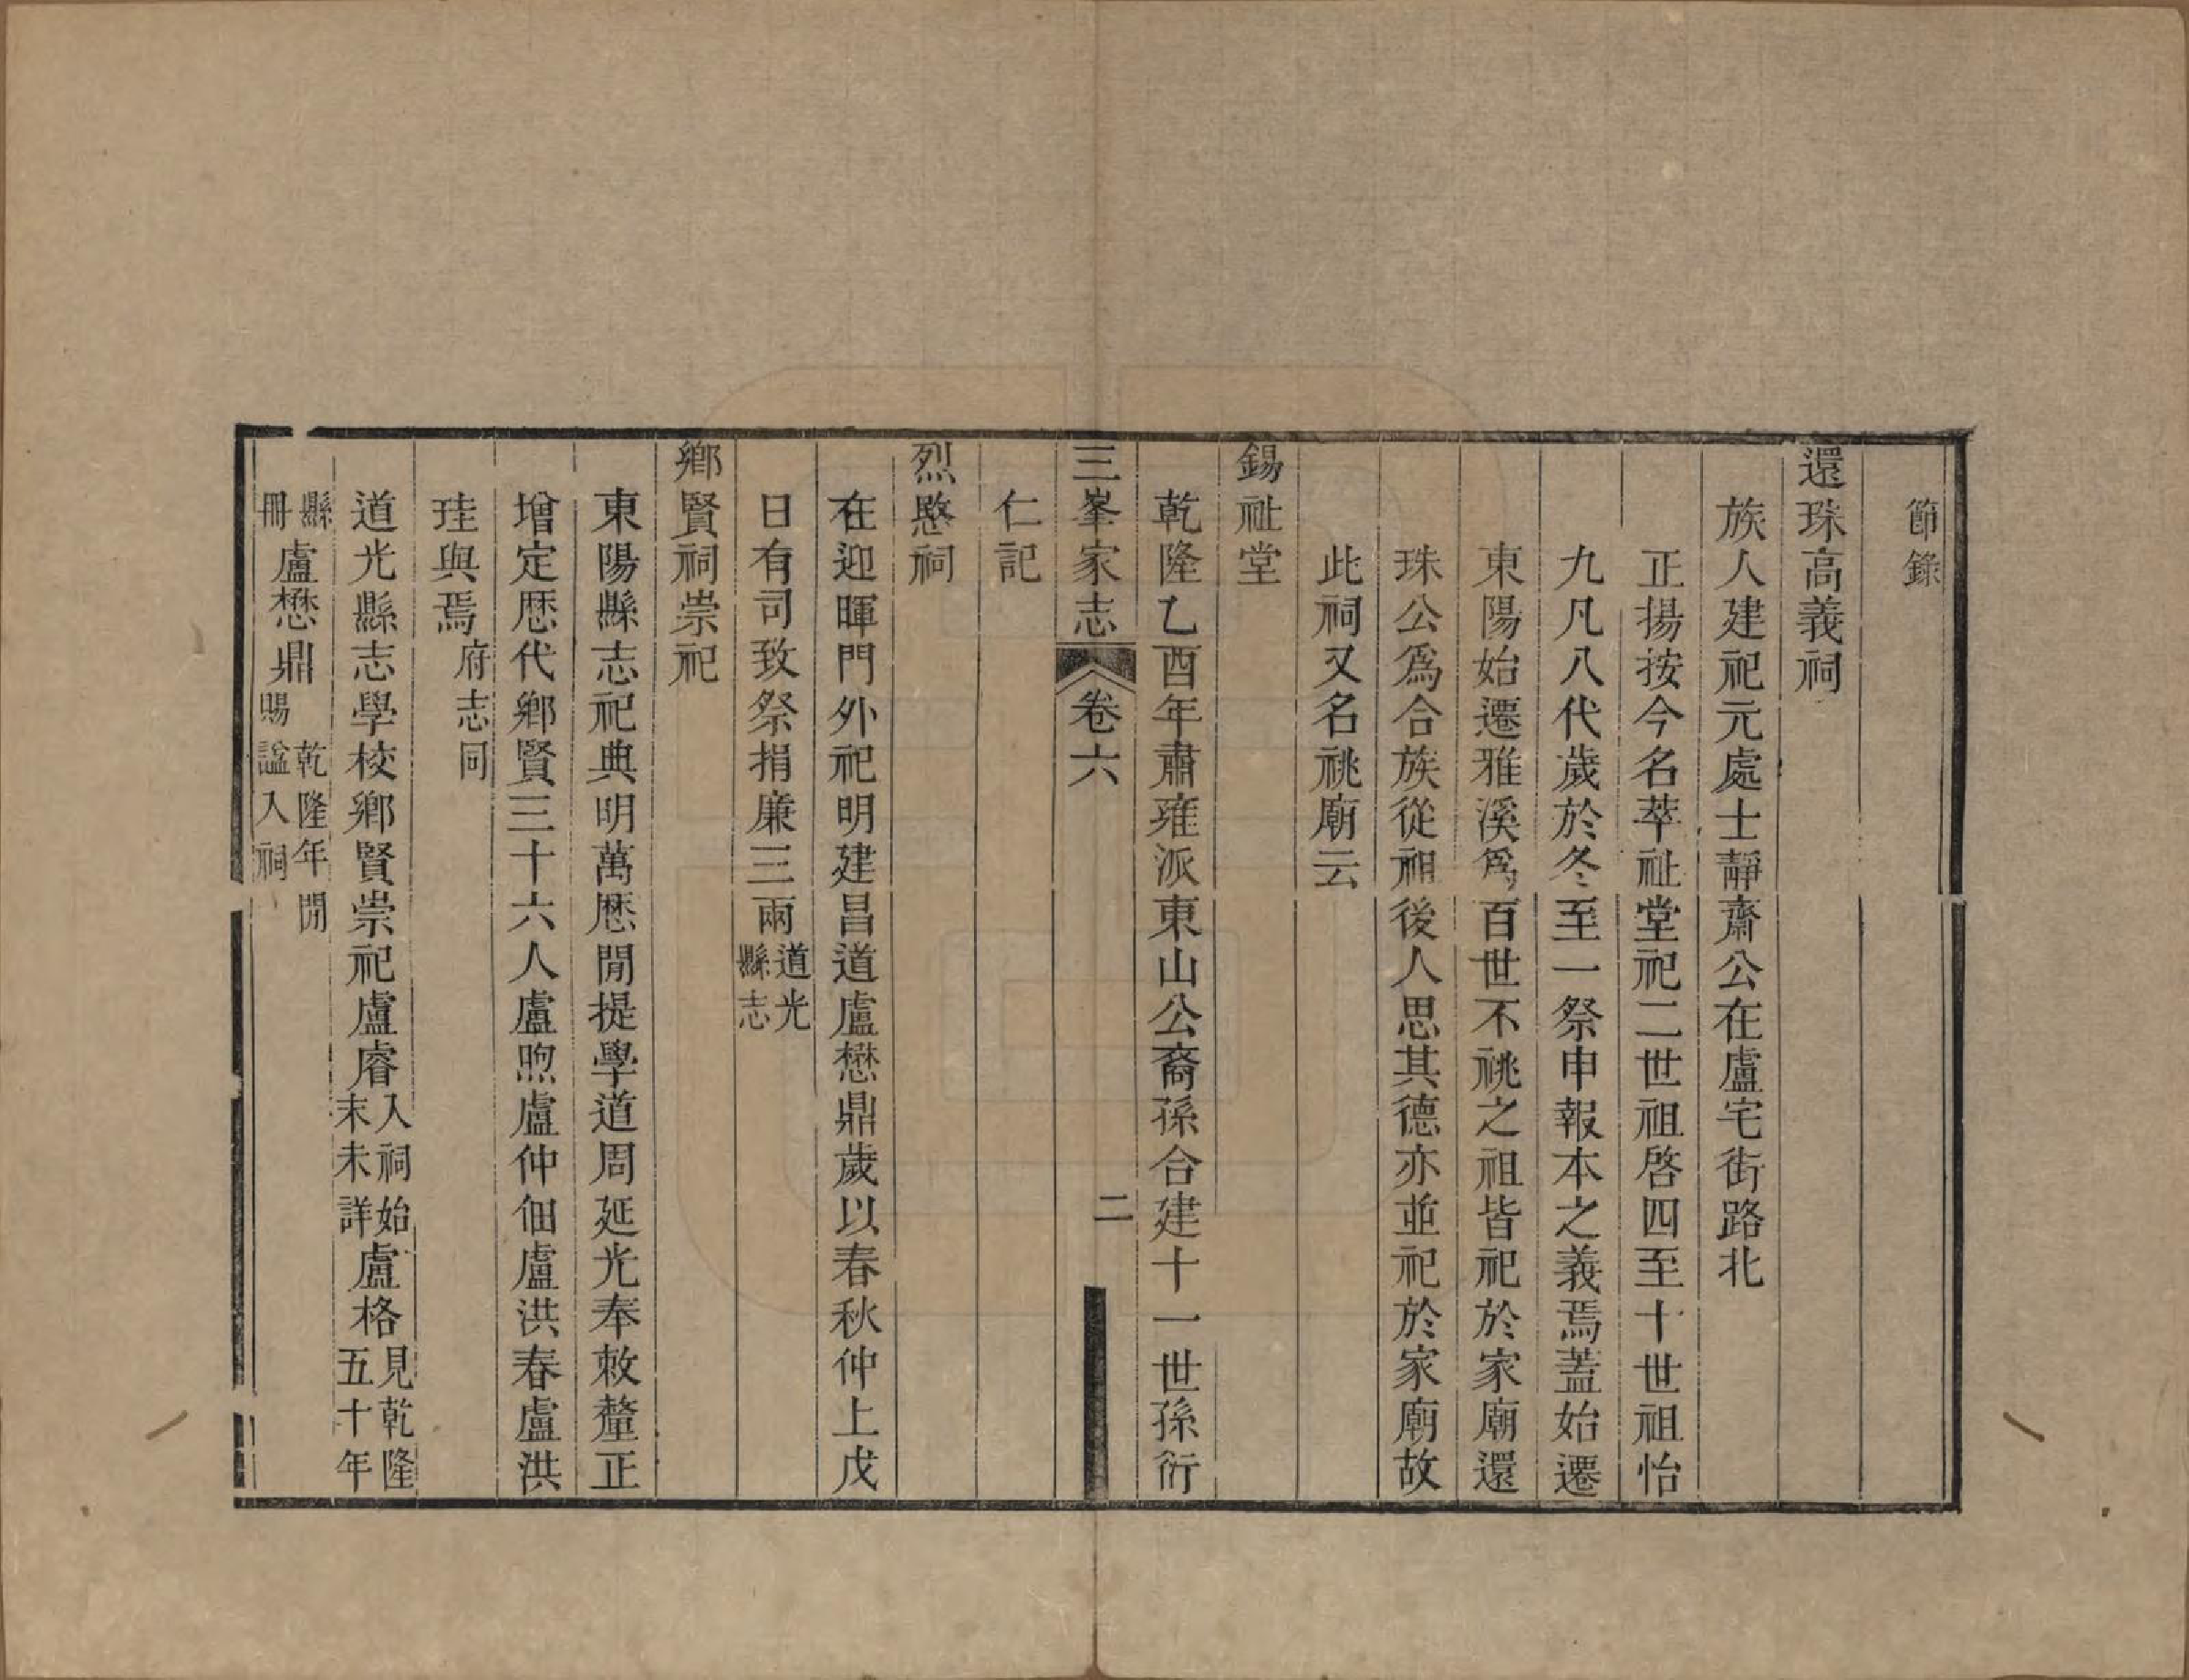 節錄
還珠高義祠
族人建祀元處士靜齋公在盧宅街路北
正揚按今名萃祉堂祀二世祖啓四至十世祖怡
九凡八代歲於冬至一祭申報本之義焉蓋始遷
東陽始遷雅溪爲百世不祧之祖皆祀於家廟還
珠公爲合族從祖後人思其德亦並祀於家廟故
此祠又名祧廟云
錫祉堂
乾隆乙酉年肅雍派東山公裔孫合建十一世孫衍
三峯家志 卷六 二
仁記
烈愍祠
在迎暉門外祀明建昌道盧懋鼎歲以春秋仲上戊
日有司致祭捐廉三兩道光縣志
鄉賢祠崇祀
東陽縣志祀典明萬厯閒提學道周延光奉敕釐正
增定厯代鄉賢三十六人盧煦盧仲佃盧洪春盧洪
珪與焉府志同
道光縣志學校鄉賢崇祀盧睿入祠始末未詳盧格見乾隆五十年
縣冊盧懋鼎乾隆年閒賜諡入祠